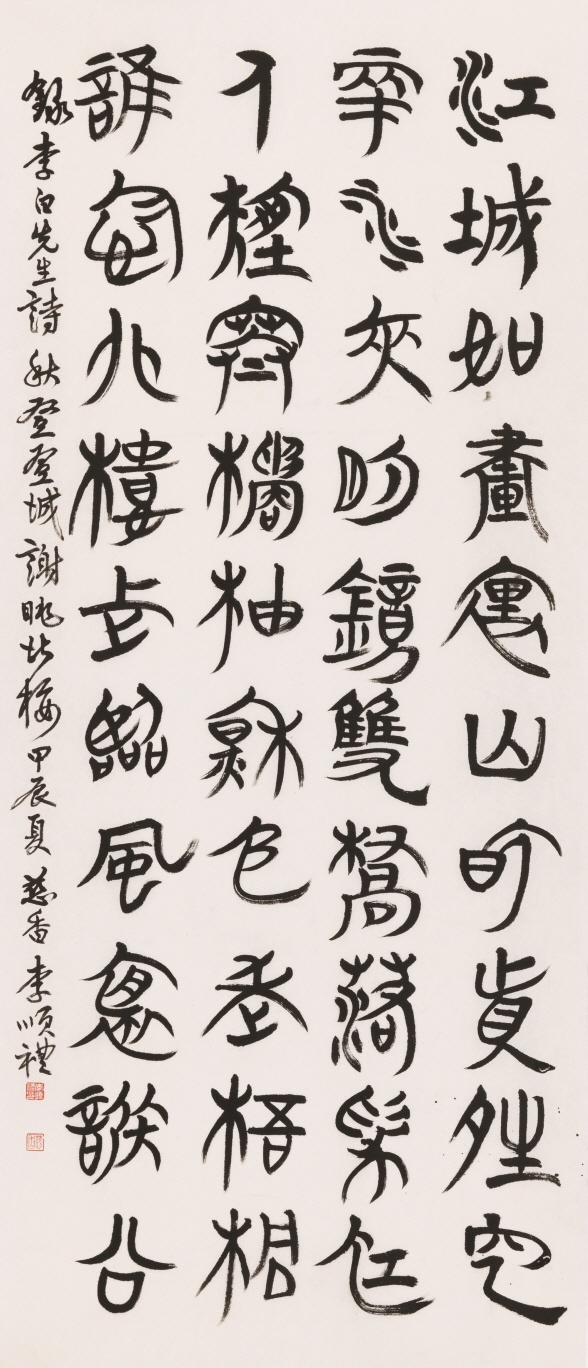 江城如畫裏山晚望晴空
兩水夾明鏡雙橋落彩虹
人煙寒橘柚秋色老梧桐
誰念北樓上臨風懷謝公
錄李白先生詩 秋登宣城謝朓北樓 甲辰夏 慈香李順禮